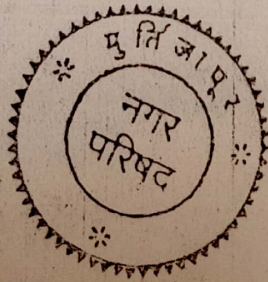 मुर्तिजापूर
नगर
परिषद